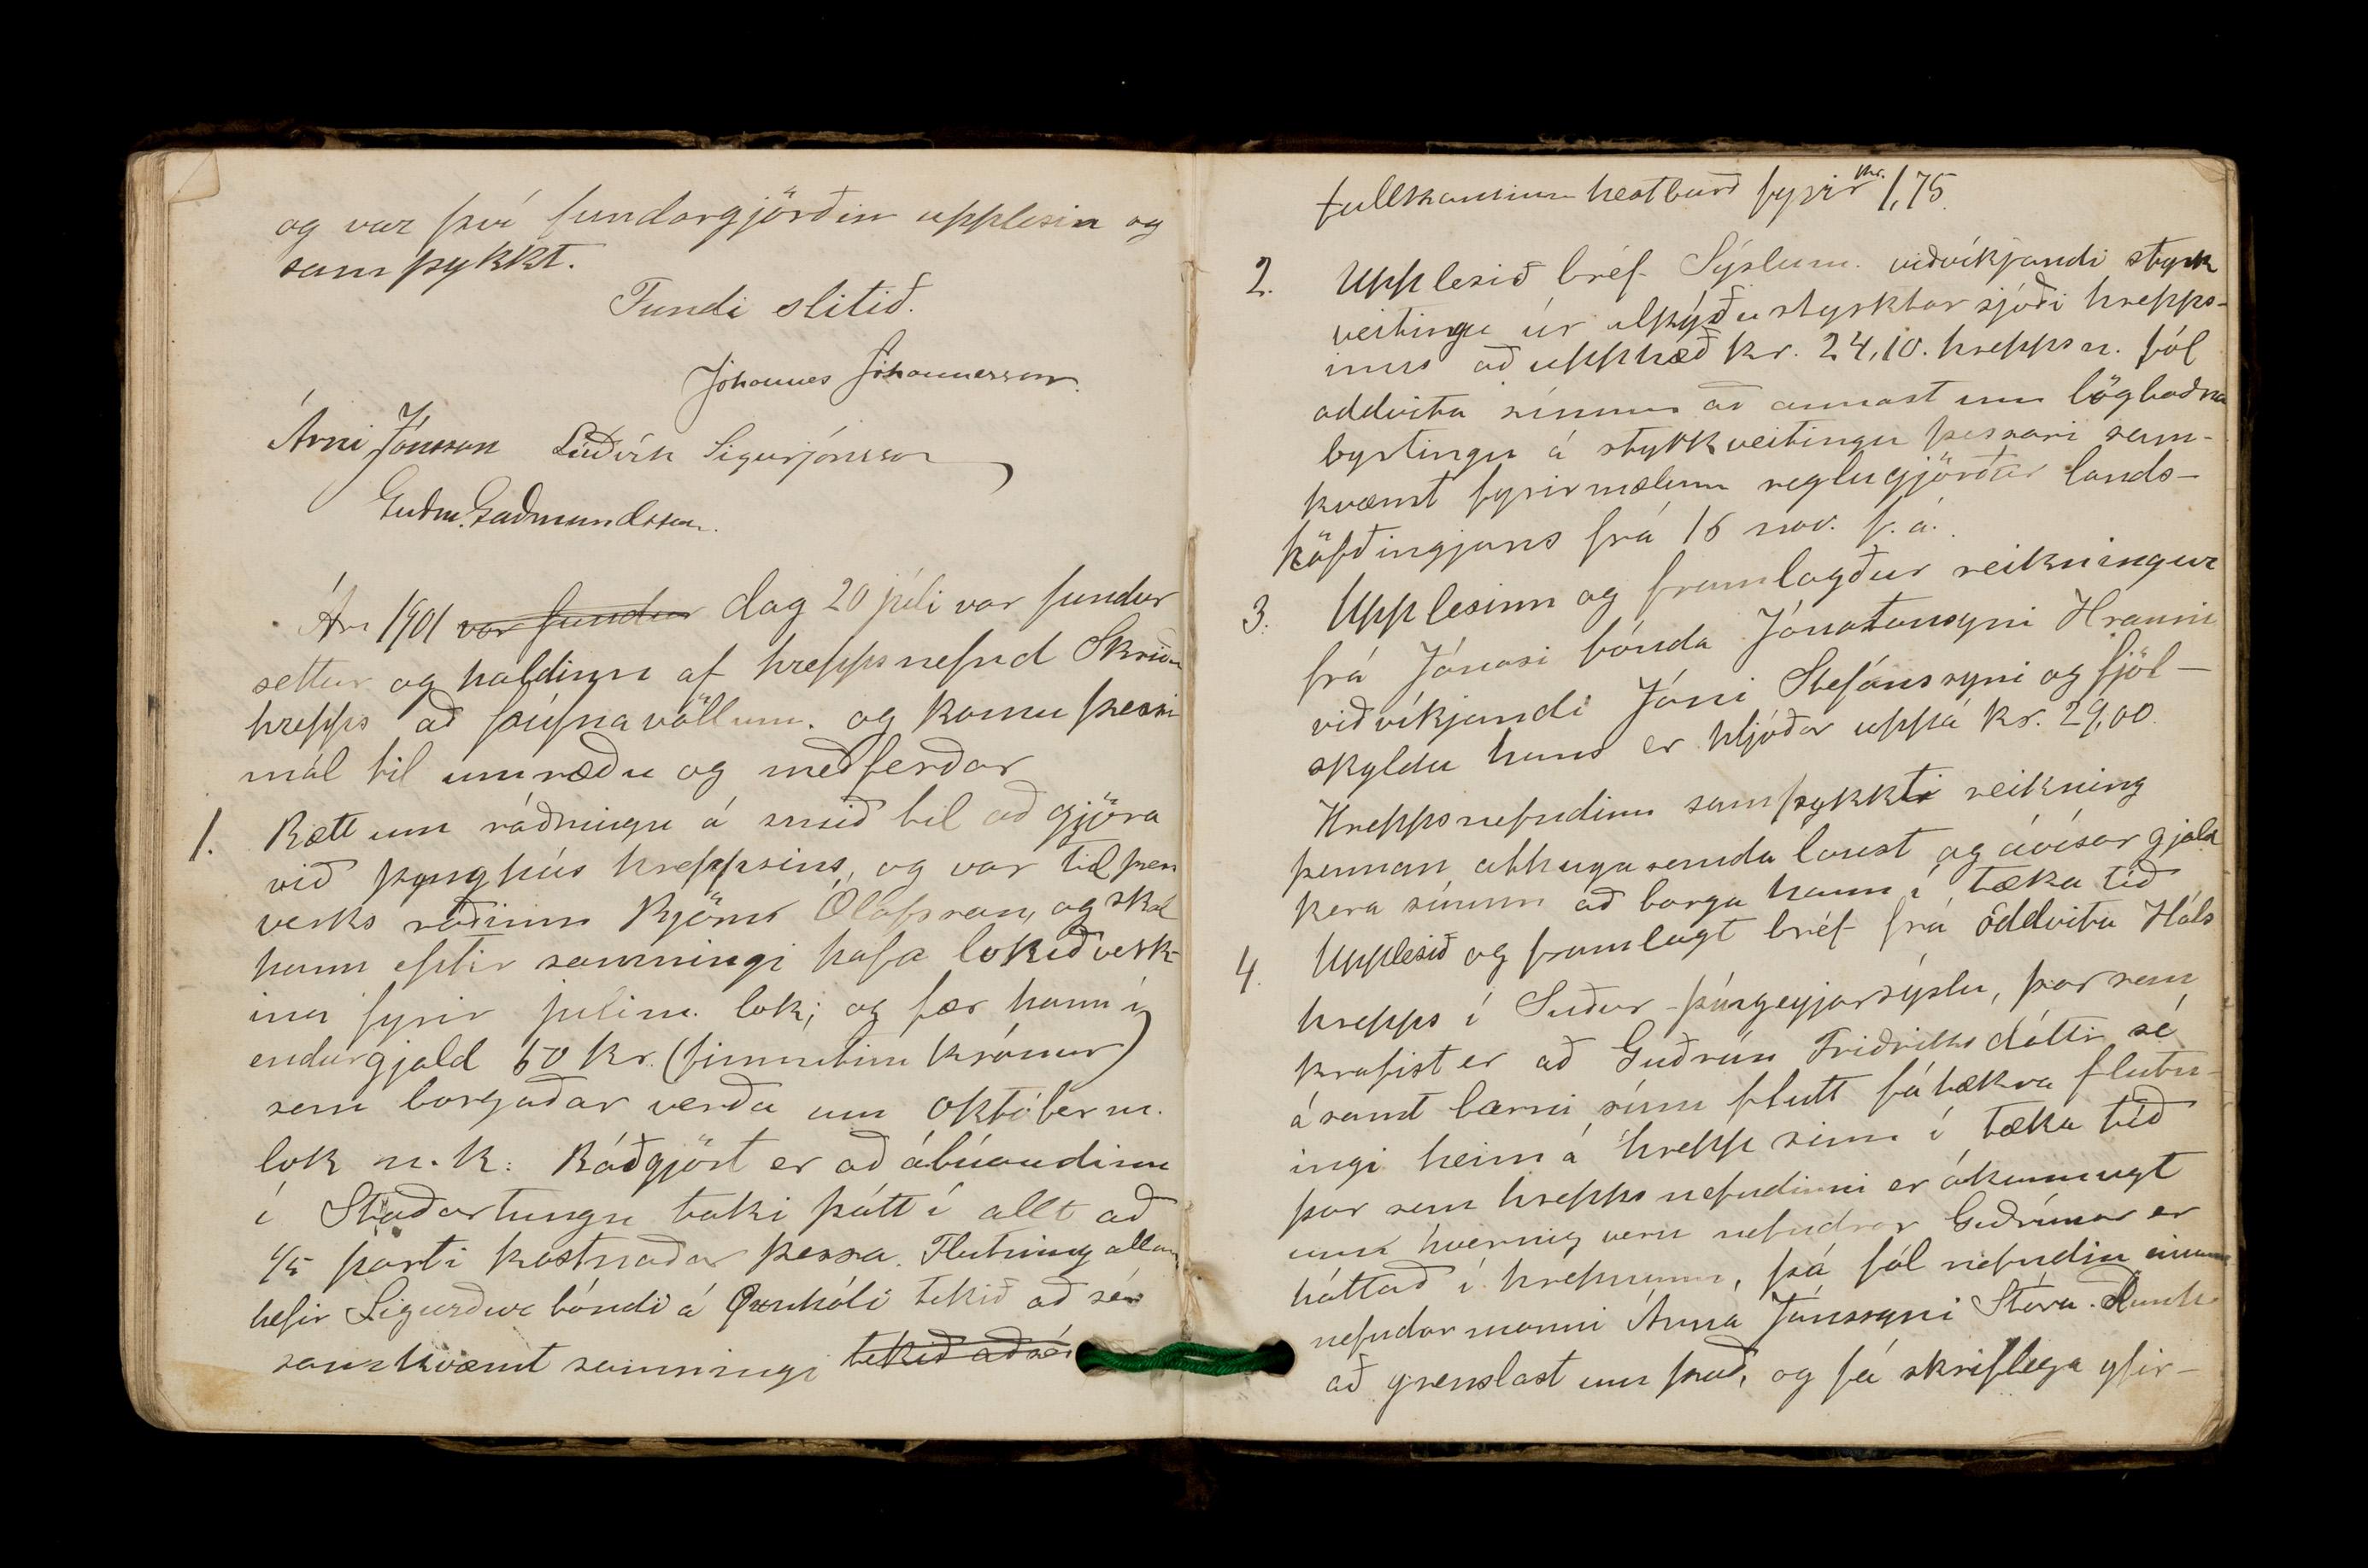 og var því fundargjörðin upplesin og
samþykkt.
Fundi slitið.
Jóhannes Jóhannesson.
Árni Jónsson Lúðvík Sigurjónsson
Guðm. Guðmundsson.
Ár 1901 var fundur dag 20 júli var fundur
settur og haldinn af hreppsnefnd Skriðu
hrepps að þúfnavöllum. og komu þessi
mál til umræðu og meðferðar
1. Rætt um ráðningu á smið til að gjöra
við þynghús hreppsins, og var til þess
verks ráðinn Björn Ólafsson, og skal
hann eftir samningi hafa lokið verk-
inu fyrir júlím. lok; og fær hann í
endurgjald 50 kr. (fimmtíu krónur)
sem borgaðar verða um októberm.
lok n.k: Ráðgjört er að ábúandinn
í Staðartungu taki þátt í allt að
1/5 parti kostnaðar þessa. Flutning allan
hefir Sigurður bóndi á Öxnhóli tekið að sér
samkvæmt samningi tekið að sér
fullkominn hestburð fyrir kr. 1,75.
2. Upplesið bréf Sýslum. viðvíkjandi styrk
veitingu úr alþýðustyrktarsjóði hrepps-
ins að upphæð kr. 24,10. hreppsn. fól
oddvita sínum að annast um lögboðna
byrtingu á styrkveitingu þessari sam-
kvæmt fyrirmælum reglugjörðar lands-
höfðingjans frá 16 nov. f. á.
3. Upplesinn og framlagður reikningur
frá Jónasi bónda Jónatansyni Hrauni
viðvíkjandi Jóni Stefánssyni og fjöl-
skyldu hans er hljóðar uppá kr. 29,00.
Hreppsnefndin samþykkti reikning
þennan athugasemdalaust og ávísar gjald
kera sínum að borga hann í tæka tíð
4. Upplesið og framlagt bréf frá oddvita Háls
hrepps í Suður-þingeyjarsýslu, þar sem
krafist er að Guðrún Friðriksdóttir sé
ásamt barni sínu flutt fátækra flutn-
ingi heim á hrepp sinn í tæka tíð
þar sem hreppsnefndinni er ókunnugt
um hvernig veru nefndrar Guðrúnar er
háttað í hrepnum, þá fól nefndin einum
nefndarmanni Árna Jónssyni Stóra-Dunh
að grenslast um það, og fá skriflega yfir-